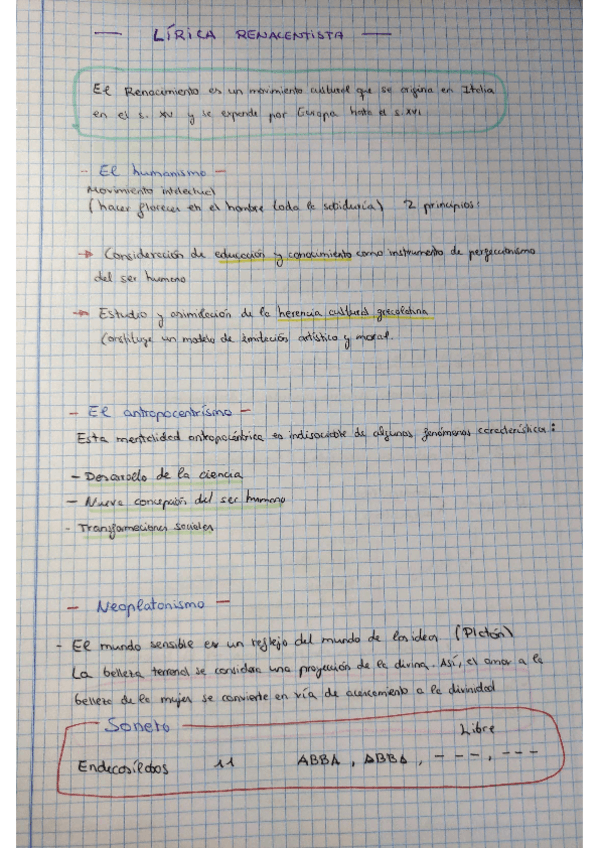 — LÍRICA RENACENTISTA —
El Renacimiento es un movimiento cultural que se origina en Italia
en el s. XV y se expande por Europa hasta el s. XVI
- El humanismo -
Movimiento intelectual
(hacer florecer en el hombre toda la sabiduría) 2 principios:
→ Consideración de educación y conocimiento como instrumento de perfeccionismo
del ser humano
→ Estudio y asimilación de la herencia cultural grecolatina
Constituye un modelo de imitación artístico y moral.
- El antropocentrismo -
Esta mentalidad antropocéntrica es indisociable de algunos fenómenos característicos:
- Desarrollo de la ciencia
- Nueva concepción del ser humano
- Transformaciones sociales
- Neoplatonismo -
- El mundo sensible es un reflejo del mundo de las ideas (Platón)
La belleza terrenal se considera una proyección de la divina. Así, el amor a la
belleza de la mujer se convierte en vía de acercamiento a la divinidad
Soneto
Libre
Endecasílabos 11 ABBA, ABBA, - - -, - - -